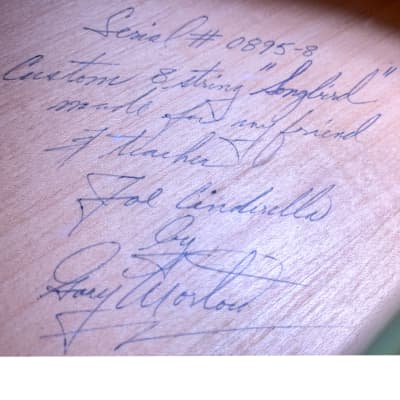 Serial # 0895-8
Custom 8 string "Songbird"
made for my friend
& teacher
Joe Cinderella
by
Gary Mortou